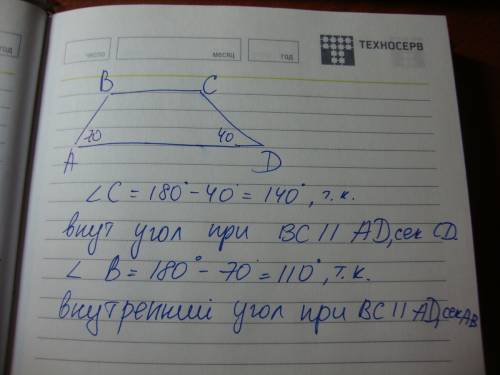 год
число
месяц
год
ТЕХНОСЕРВ
B C
70 40
A D
∠C = 180° - 40° = 140°, т.к.
внут угол при BC || AD, сек CD.
∠ B = 180° - 70° = 110°, т.к.
внутренний угол при BC || AD, сек AB